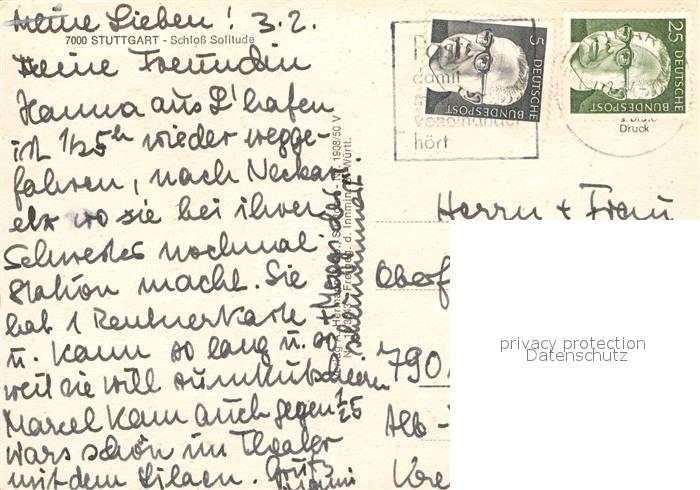 Meine Lieben! 3.2.
7000 STUTTGART - Schloß Solitude
Meine Freundin
Hanna aus L'hafen
ist 1/2 5h wieder wegge-
fahren, nach Neckar
elz wo sie bei ihrer
Schwester nochmal
Station macht. Sie
hat 1 Rentnerkarte
u. kann so lang u. so
weit sie will rumkutschieren
Marcel kam auch gegen 1/2 5
wars schön im Theater
mit dem Lilaen. Gruß
Mami
1908/50 V
Innenmin.
Württ.
5 DEUTSCHE BUNDESPOST
25 DEUTSCHE BUNDESPOST
Post
damit
hört
Druck
Herrn + Frau
Oberf
790
Alb-
privacy protection
Datenschutz